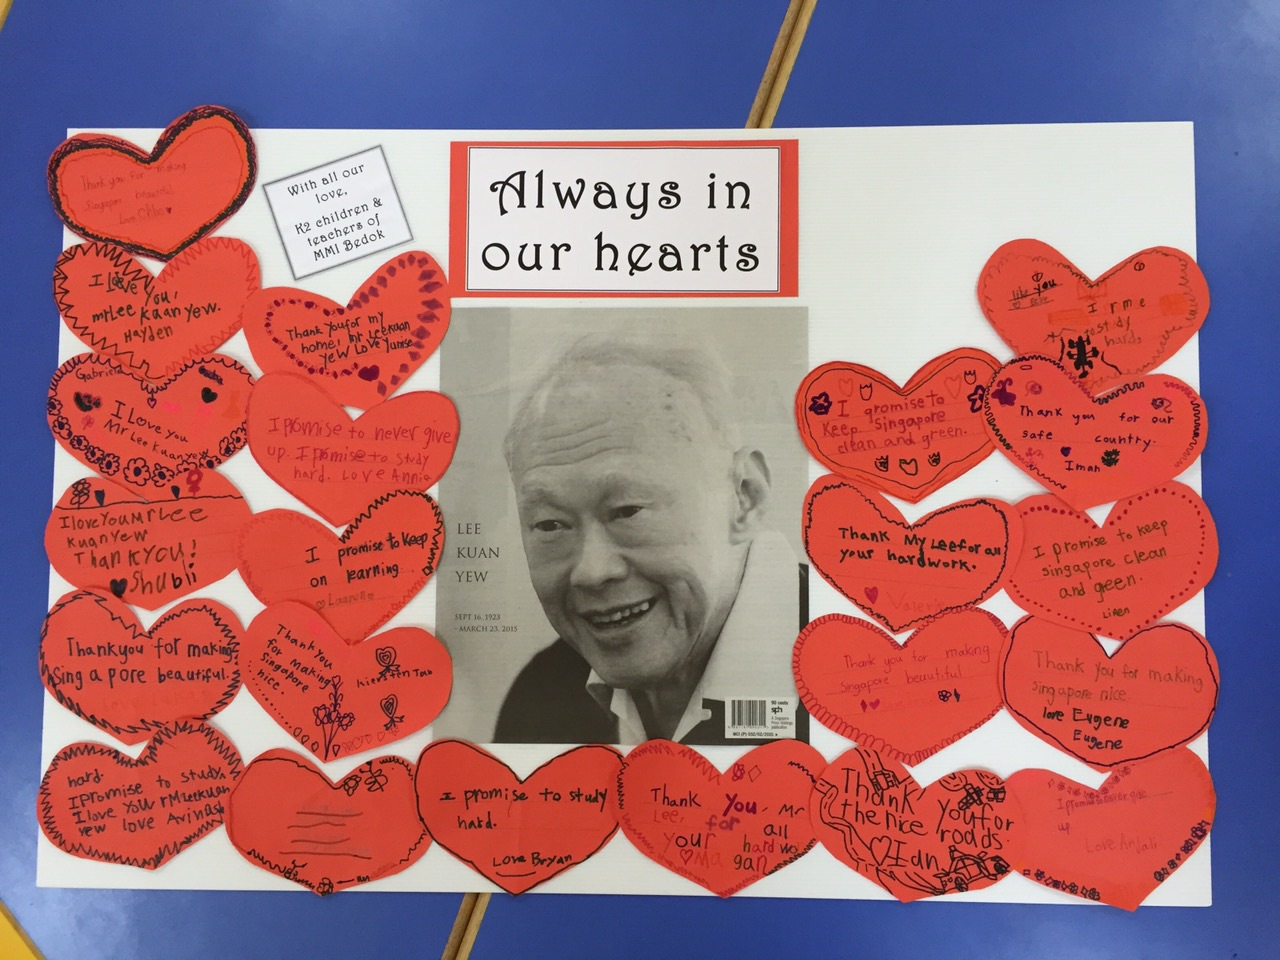 Always in
our hearts
With all our
love,
K2 children &
teachers of
MMI Bedok
LEE
KUAN
YEW
SEPT 16, 1923
– MARCH 23, 2015
90 cents
sph
Thank you for making
Singapore beautiful
Love Chloe
I love
you,
mrLee Kuanyew.
Hayden
Thank You for my
home, Mr Lee Kuan
yew Love Yunise
Gabriel
I Love you
Mr Lee Kuan yew
I Promise to never give
up. I Promise to study
hard. Love Annia
I love You Mr Lee
Kuan Yew
Thank you!
Shubli
I promise to keep
on learning
Thankyou for making
Singapore beautiful.
Thank you
for making
Singapore
nice.
hard.
I Promise to study.
I love you
yew love Avinash
I promise to study
hard.
Love Bryan
Thank you, Mr
Lee, for all
your hard wo
Thank you for
the nice roads.
Idn
up
Love Anjali
you
study
hard
I promise to
Keep Singapore
clean and green.
Thank you for our
safe country.
Iman
Thank My Lee for all
your hardwork.
Valerie
I promise to keep
singapore clean
and green.
Thank you for making
Singapore beautiful
Thank you for making
singapore nice.
love Eugene
Eugene